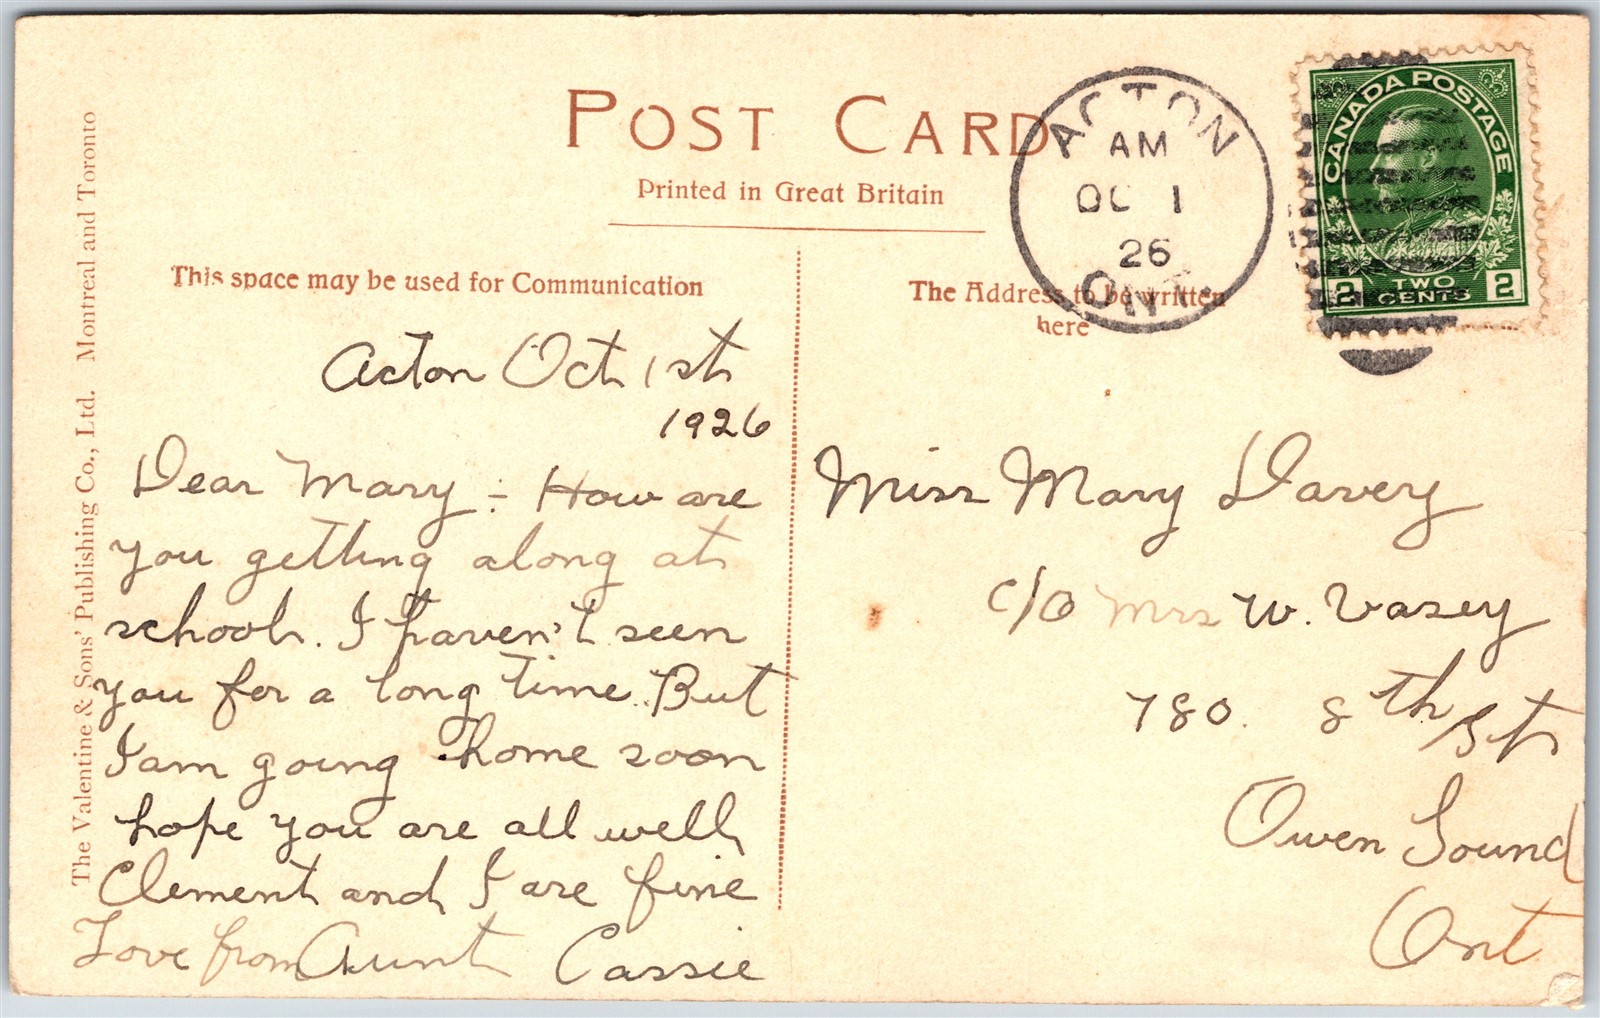 POST CARD
Printed in Great Britain
The Valentine & Sons' Publishing Co., Ltd. Montreal and Toronto
This space may be used for Communication
The Address to be written
here
ACTON
AM
OC 1
26
ONT.
CANADA POSTAGE
2 TWO CENTS 2
Acton Oct 1st
1926
Dear Mary :- How are
you getting along at
school. I haven't seen
you for a long time. But
I am going home soon
hope you are all well
Clement and I are fine
Love from Aunt Cassie
Miss Mary Davey
c/o Mrs W. Vasey
780. 8th St
Owen Sound
Ont